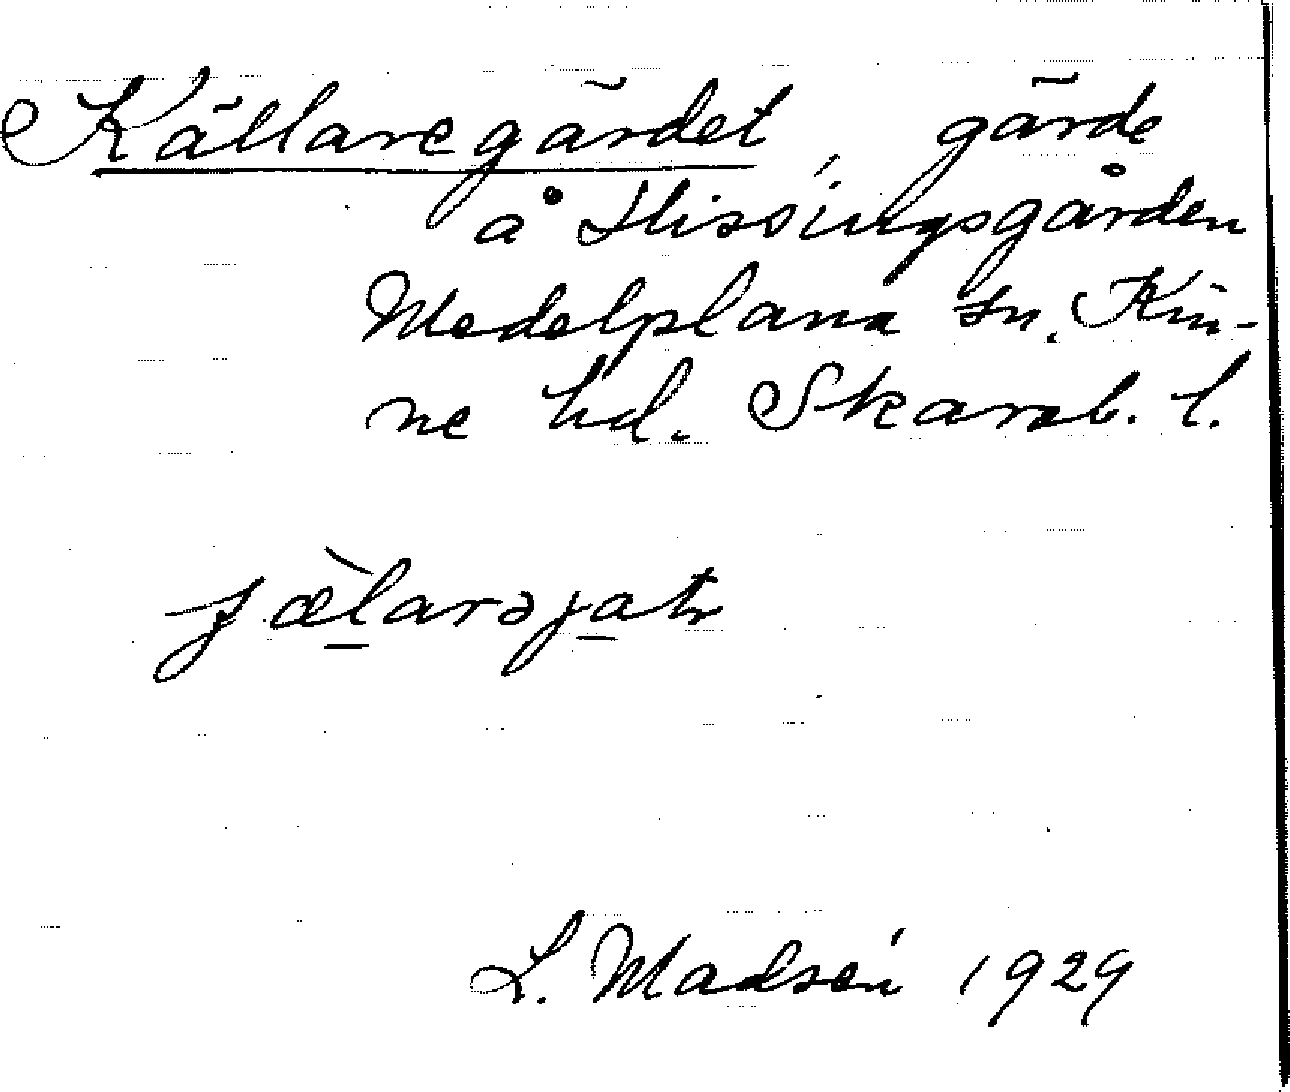 Källaregärdet, gärde
å Hissingsgården
Medelplana sn. Kin-
ne hd. Skarab. l.
L. Madsén 1929